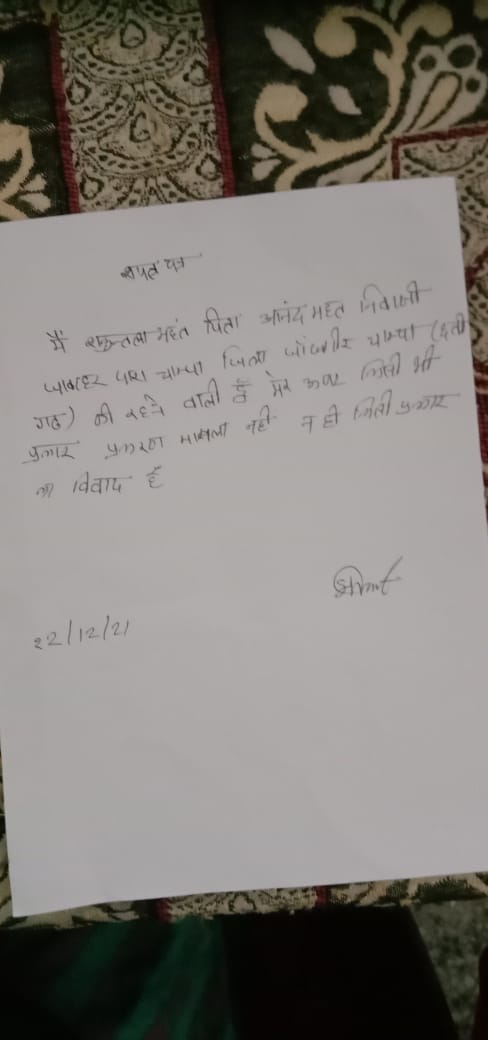 शपत पत्र
मैं शकुन्तला महंत पिता आनंद महंत निवासी
पारा चाम्पा जिला जांजगीर चाम्पा (छत्ती
गढ) की रहने वाली हूँ मेरे ऊपर किसी भी
प्रकार प्रकरण मामला नही न ही किसी प्रकार
का विवाद है
22/12/21